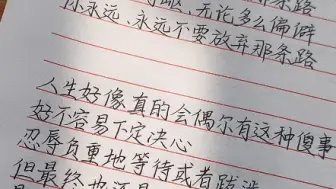 无论多么偏僻
你永远、永远不要放弃那条路
人生好像真的会偶尔有这种傻事
好不容易下定决心
忍辱负重地等待或者跋涉
但最终也还是